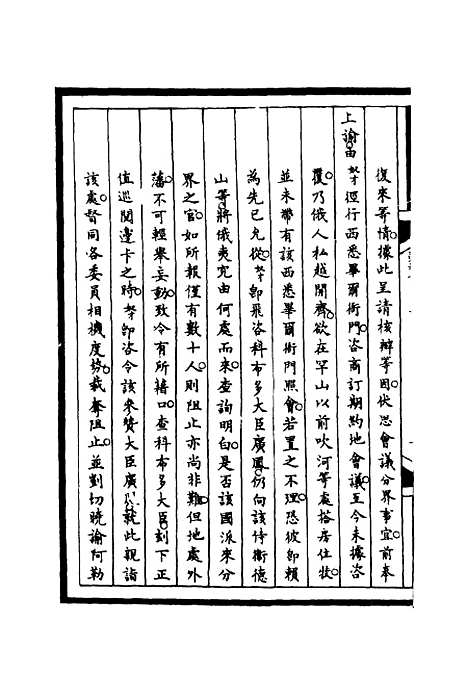 復來等情據此呈請核辦等因伏思會議分界事宜前奉
上諭由奴才逕行西悉畢爾衙門咨商訂期約地會議至今未據咨
覆乃俄人私越開齊欲在罕山以前吹河等處搭房住牧
並未帶有該西悉畢爾衙門照會若置之不理恐彼即賴
為先已允從奴才即飛咨科布多大臣廣鳳仍向該侍衛德
山等將俄夷究由何處而來查詢明白是否該國派來分
界之官如所報僅有數十人則阻止亦尚非難但地處外
藩不可輕舉妄動致令有所藉口查科布多大臣刻下正
值巡閱邊卡之時奴才即咨令該參贊大臣廣鳳就此親詣
該處督同各委員相機度勢裁奪阻止並剴切曉諭阿勒